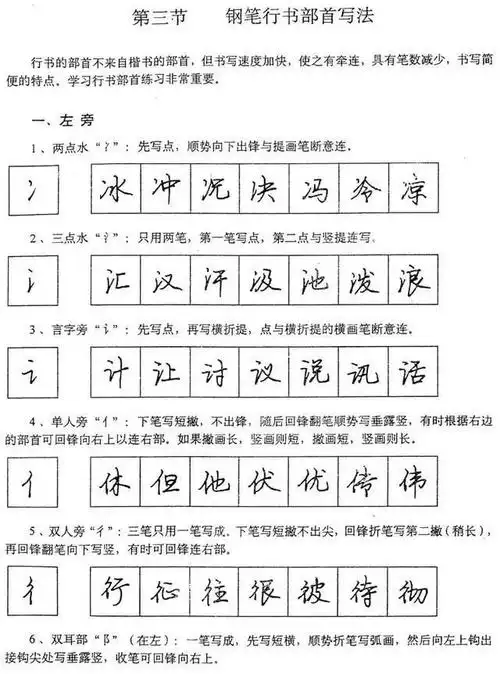 第三节 钢笔行书部首写法
行书的部首不来自楷书的部首，但书写速度加快，使之有牵连，具有笔数减少，书写简
便的特点。学习行书部首练习非常重要。
一、左旁
1、两点水“冫”：先写点，顺势向下出锋与提画笔断意连。
冫 冰 冲 况 决 冯 冷 凉
2、三点水“氵”：只用两笔，第一笔写点，第二点与竖提连写。
氵 汇 汉 汗 汲 池 泼 浪
3、言字旁“讠”：先写点，再写横折提，点与横折提的横画笔断意连。
讠 计 让 讨 议 说 讯 话
4、单人旁“亻”：下笔写短撇，不出锋，随后回锋翻笔顺势写垂露竖，有时根据右边
的部首可回锋向右上以连右部。如果撇画长，竖画则短，撇画短，竖画则长。
亻 休 但 他 伏 优 传 伟
5、双人旁“彳”：三笔只用一笔写成。下笔写短撇不出尖，回锋折笔写第二撇（稍长），
再回锋翻笔向下写竖，有时可回锋连右部。
彳 行 征 往 很 彼 待 彻
6、双耳部“阝”（在左）：一笔写成，先写短横，顺势折笔写弧画，然后向左上钩出
接钩尖处写垂露竖，收笔可回锋向右上。